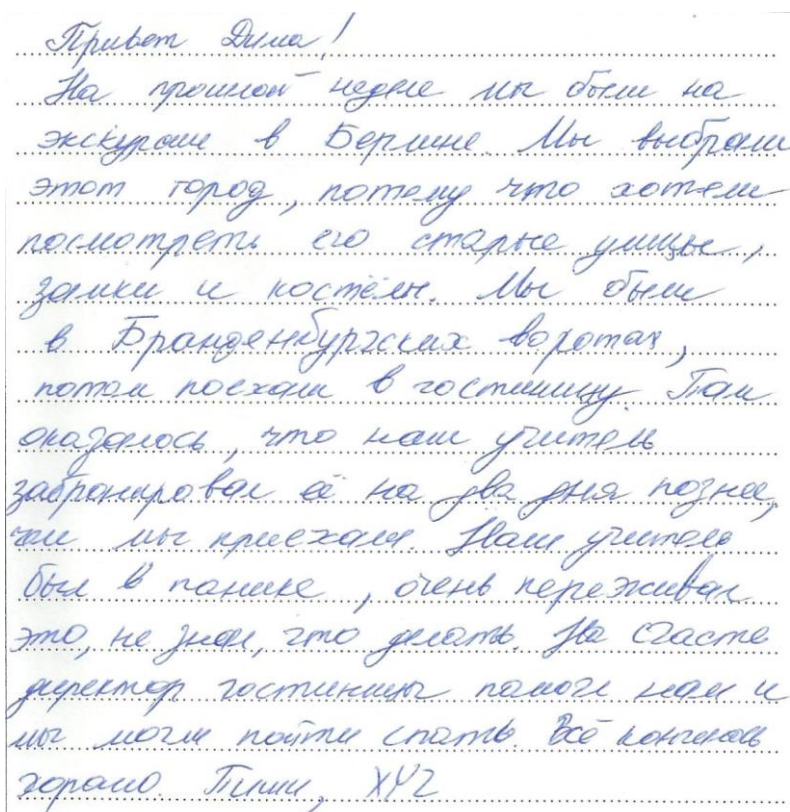 Привет Дима!
На прошлой неделе мы были на
экскурсии в Берлине. Мы выбрали
этот город, потему что хотели
посмотреть его старые улицы,
замки и костёлы. Мы были
в Бранденбургских воротах,
потом поехали в гостиницу. Там
оказалось, что наш учитель
забронировал её на два дня познее,
чем мы приехали. Наш учитель
был в панике, очень переживал
это, не знал, что делать. На счасте
директор гостиницы памогл нам и
мы могли пойти спать. Всё кончилось
хорошо. Пиши, XYZ